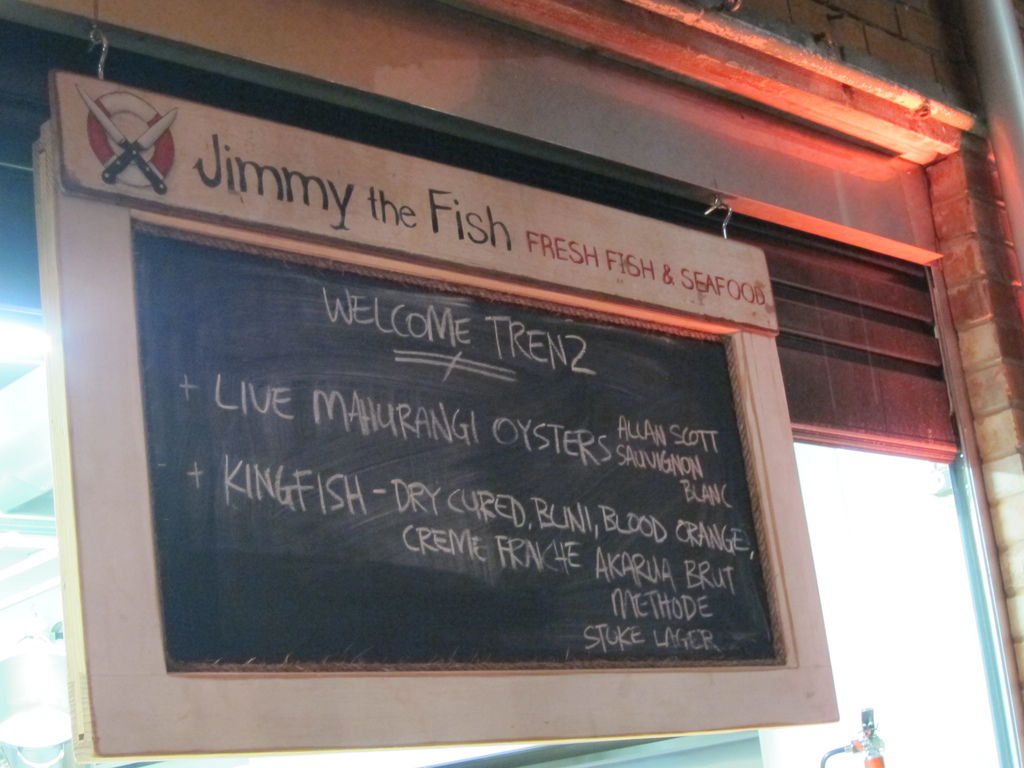 Jimmy the Fish FRESH FISH & SEAFOOD
WELCOME TRENZ
+ LIVE MAHURANGI OYSTERS ALLAN SCOTT
SAUVIGNON
BLANC
+ KINGFISH - DRY CURED, BLINI, BLOOD ORANGE,
CREME FRAICHE AKARUA BRUT
METHODE
STOKE LAGER